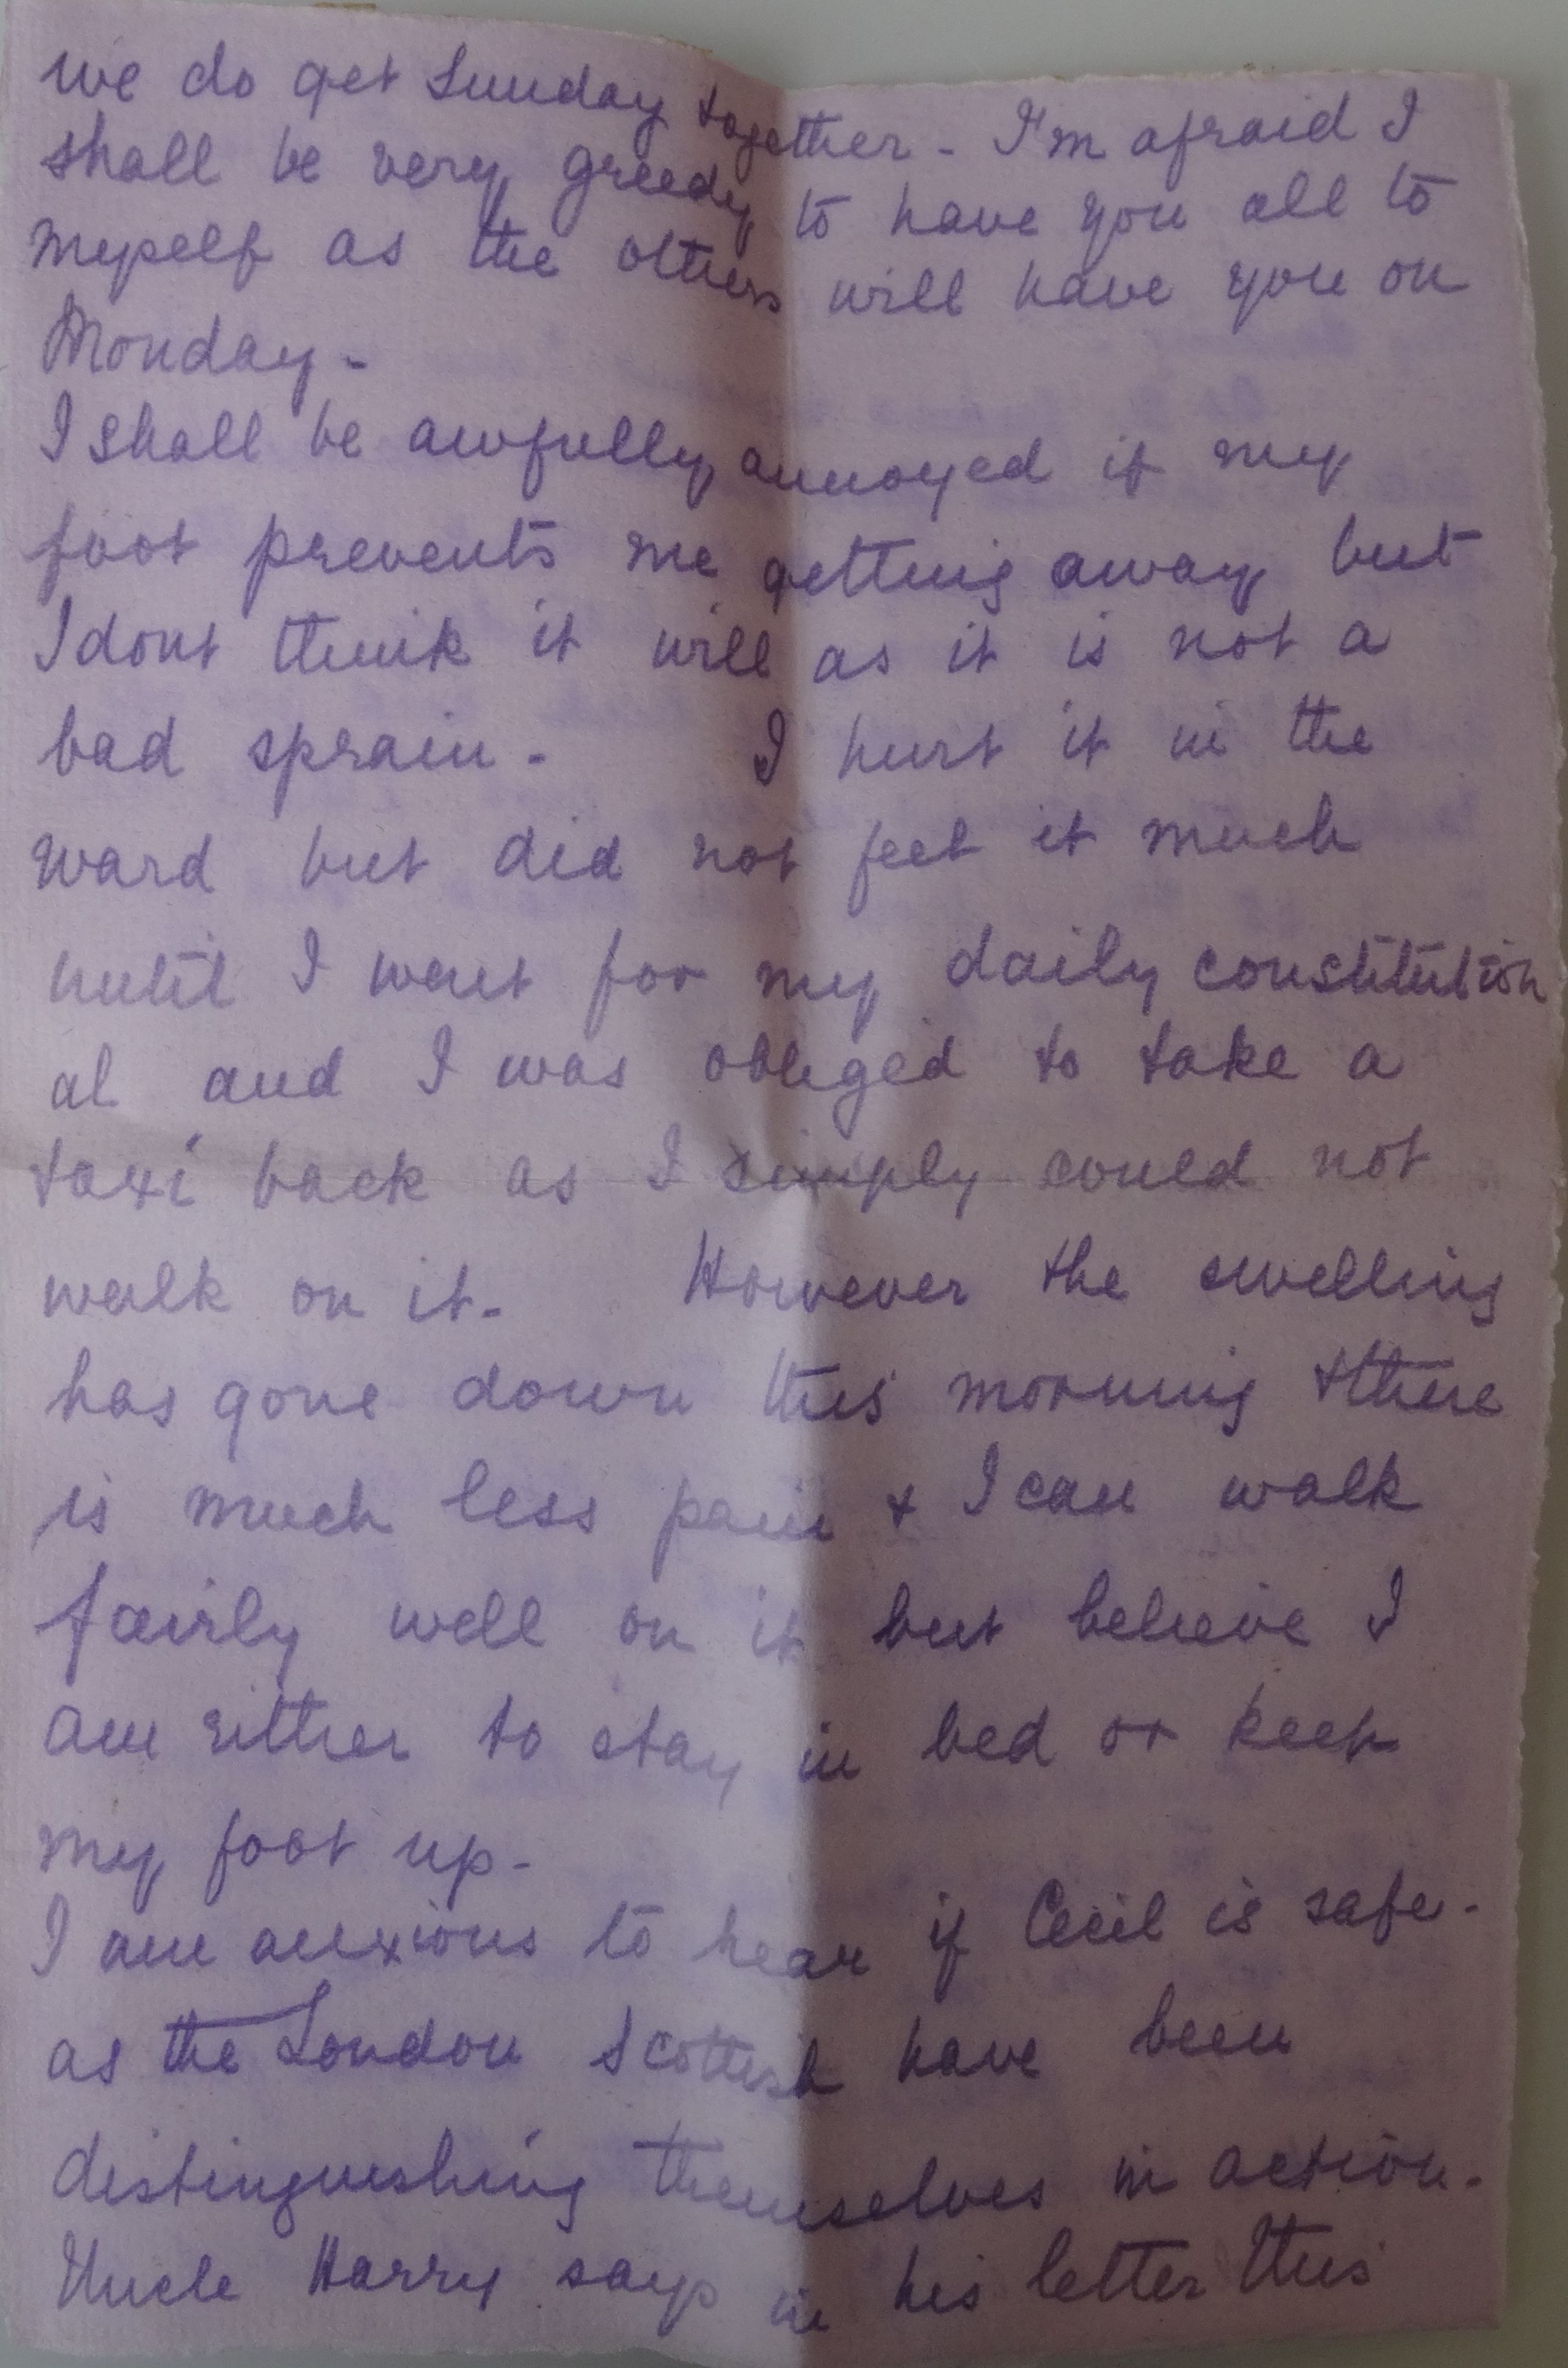 we do get Sunday together - I'm afraid I
shall be very greedy to have you all to
myself as the others will have you on
Monday -
I shall be awfully annoyed if my
foot prevents me getting away but
I dont think it will as it is not a
bad sprain - I hurt it in the
ward but did not feel it much
until I went for my daily constitution
al and I was obliged to take a
taxi back as I simply could not
walk on it - However the swelling
has gone down this morning & there
is much less pain & I can walk
fairly well on it but believe I
am either to stay in bed or keep
my foot up -
I am anxious to hear if Cecil is safe -
as the London Scottish have been
distinguishing themselves in action -
Uncle Harry says in his letter this